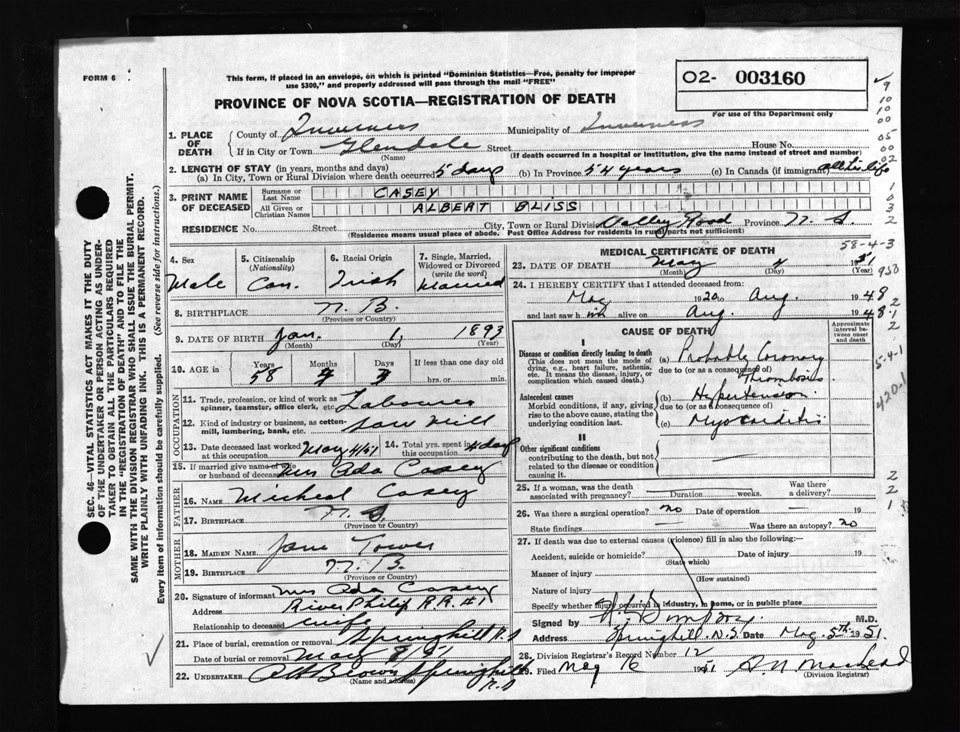 FORM 6
This form, if placed in an envelope, on which is printed "Dominion Statistics—Free, penalty for improper
use $300," and properly addressed will pass through the mail "FREE"
PROVINCE OF NOVA SCOTIA—REGISTRATION OF DEATH
O2- 003160
For use of the Department only
1. PLACE OF DEATH
County of Inverness Municipality of Inverness
If in City or Town Glendale Street House No.
(Name) (If death occurred in a hospital or institution, give the name instead of street and number)
2. LENGTH OF STAY (in years, months and days)
(a) In City, Town or Rural Division where death occurred 5 days (b) In Province 54 years (c) In Canada (if immigrant) all his life
3. PRINT NAME OF DECEASED
Surname or Last Name CASEY
All Given or Christian Names ALBERT BLISS
RESIDENCE No. Street City, Town or Rural Division Valley Road Province N. S.
(Residence means usual place of abode. Post Office Address for residents in rural parts not sufficient)
4. Sex
Male
5. Citizenship
(Nationality)
Can.
6. Racial Origin
Irish
7. Single, Married, Widowed or Divorced
(write the word)
Married
8. BIRTHPLACE N. B.
(Province or Country)
9. DATE OF BIRTH Jan. 1, 1893
(Month) (Day) (Year)
10. AGE in Years Months Days If less than one day old
58 4 3 hrs. or min.
OCCUPATION
11. Trade, profession, or kind of work as spinner, teamster, office clerk, etc. Labourer
12. Kind of industry or business, as cotton-mill, lumbering, bank, etc. Saw Mill
13. Date deceased last worked at this occupation May 4/51
14. Total yrs. spent in this occupation 4 days
15. If married give name of wife or husband of deceased Mrs Ada Casey
FATHER
16. NAME Micheal Casey
17. BIRTHPLACE N. S.
(Province or Country)
MOTHER
18. MAIDEN NAME Jane Tower
19. BIRTHPLACE N. B.
(Province or Country)
20. Signature of informant Mrs Ada Casey
Address River Philip R.R.#1
Relationship to deceased wife
21. Place of burial, cremation or removal Springhill N.S
Date of burial or removal May 8/51
22. UNDERTAKER A H Brown Springhill
(Name and address) N.S
MEDICAL CERTIFICATE OF DEATH
58-4-3
23. DATE OF DEATH May 4 1951
(Month) (Day) (Year)
24. I HEREBY CERTIFY that I attended deceased from:
May 1920 to Aug. 1948
and last saw him alive on Aug. 1948
CAUSE OF DEATH
Approximate interval between onset and death
I
Disease or condition directly leading to death
(This does not mean the mode of dying, e.g., heart failure, asthenia, etc. It means the disease, injury, or complication which caused death.)
(a) Probably Coronary
due to (or as a consequence of) Thrombosis
Antecedent causes
Morbid conditions, if any, giving rise to the above cause, stating the underlying condition last.
(b) Hypertension
due to (or as a consequence of)
(c) Myocarditis
II
Other significant conditions
contributing to the death, but not related to the disease or condition causing it.
25. If a woman, was the death associated with pregnancy? Duration weeks. Was there a delivery?
26. Was there a surgical operation? no Date of operation — 19
State findings — Was there an autopsy? no
27. If death was due to external causes (violence) fill in also the following:—
Accident, suicide or homicide? Date of injury 19
(State which)
Manner of injury
(How sustained)
Nature of injury
Specify whether injury occurred in industry, in home, or in public place
Signed by M.D.
Address Springhill. N.S. Date May. 5th 1951.
28. Division Registrar's Record Number 12
29. Filed May 16 1951
(Division Registrar)
SEC. 46—VITAL STATISTICS ACT MAKES IT THE DUTY
OF THE UNDERTAKER OR PERSON ACTING AS UNDER-
TAKER TO OBTAIN ALL THE PARTICULARS REQUIRED
IN THE "REGISTRATION OF DEATH" AND TO FILE THE
SAME WITH THE DIVISION REGISTRAR WHO SHALL ISSUE THE BURIAL PERMIT.
WRITE PLAINLY WITH UNFADING INK. THIS IS A PERMANENT RECORD.
Every item of information should be carefully supplied. (See reverse side for instructions.)
9
10
10
00
05
00
02
1
0
3
2
953
2
1
2
5-4-1
420.1
2
2
1